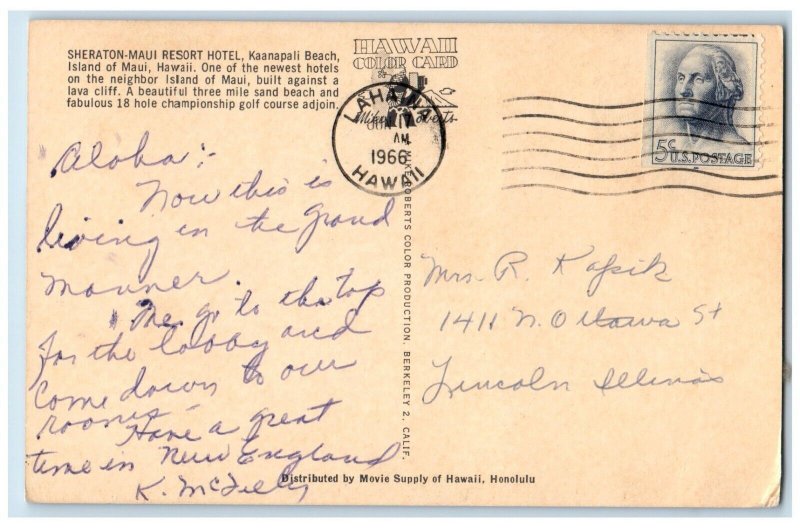 SHERATON-MAUI RESORT HOTEL, Kaanapali Beach,
Island of Maui, Hawaii. One of the newest hotels
on the neighbor Island of Maui, built against a
lava cliff. A beautiful three mile sand beach and
fabulous 18 hole championship golf course adjoin.
HAWAII
COLOR CARD
LAHAINA
JUN 17
AM
1966
HAWAII
5¢ U.S. POSTAGE
Aloha:-
Now this is
living in the grand
manner.
We go to the top
for the lobby and
come down to our
rooms.
Have a great
time in New England
K.
MIKE ROBERTS COLOR PRODUCTION. BERKELEY 2, CALIF.
Mrs. R.
1411 N. Ottawa St
Lincoln Illinois
Distributed by Movie Supply of Hawaii, Honolulu